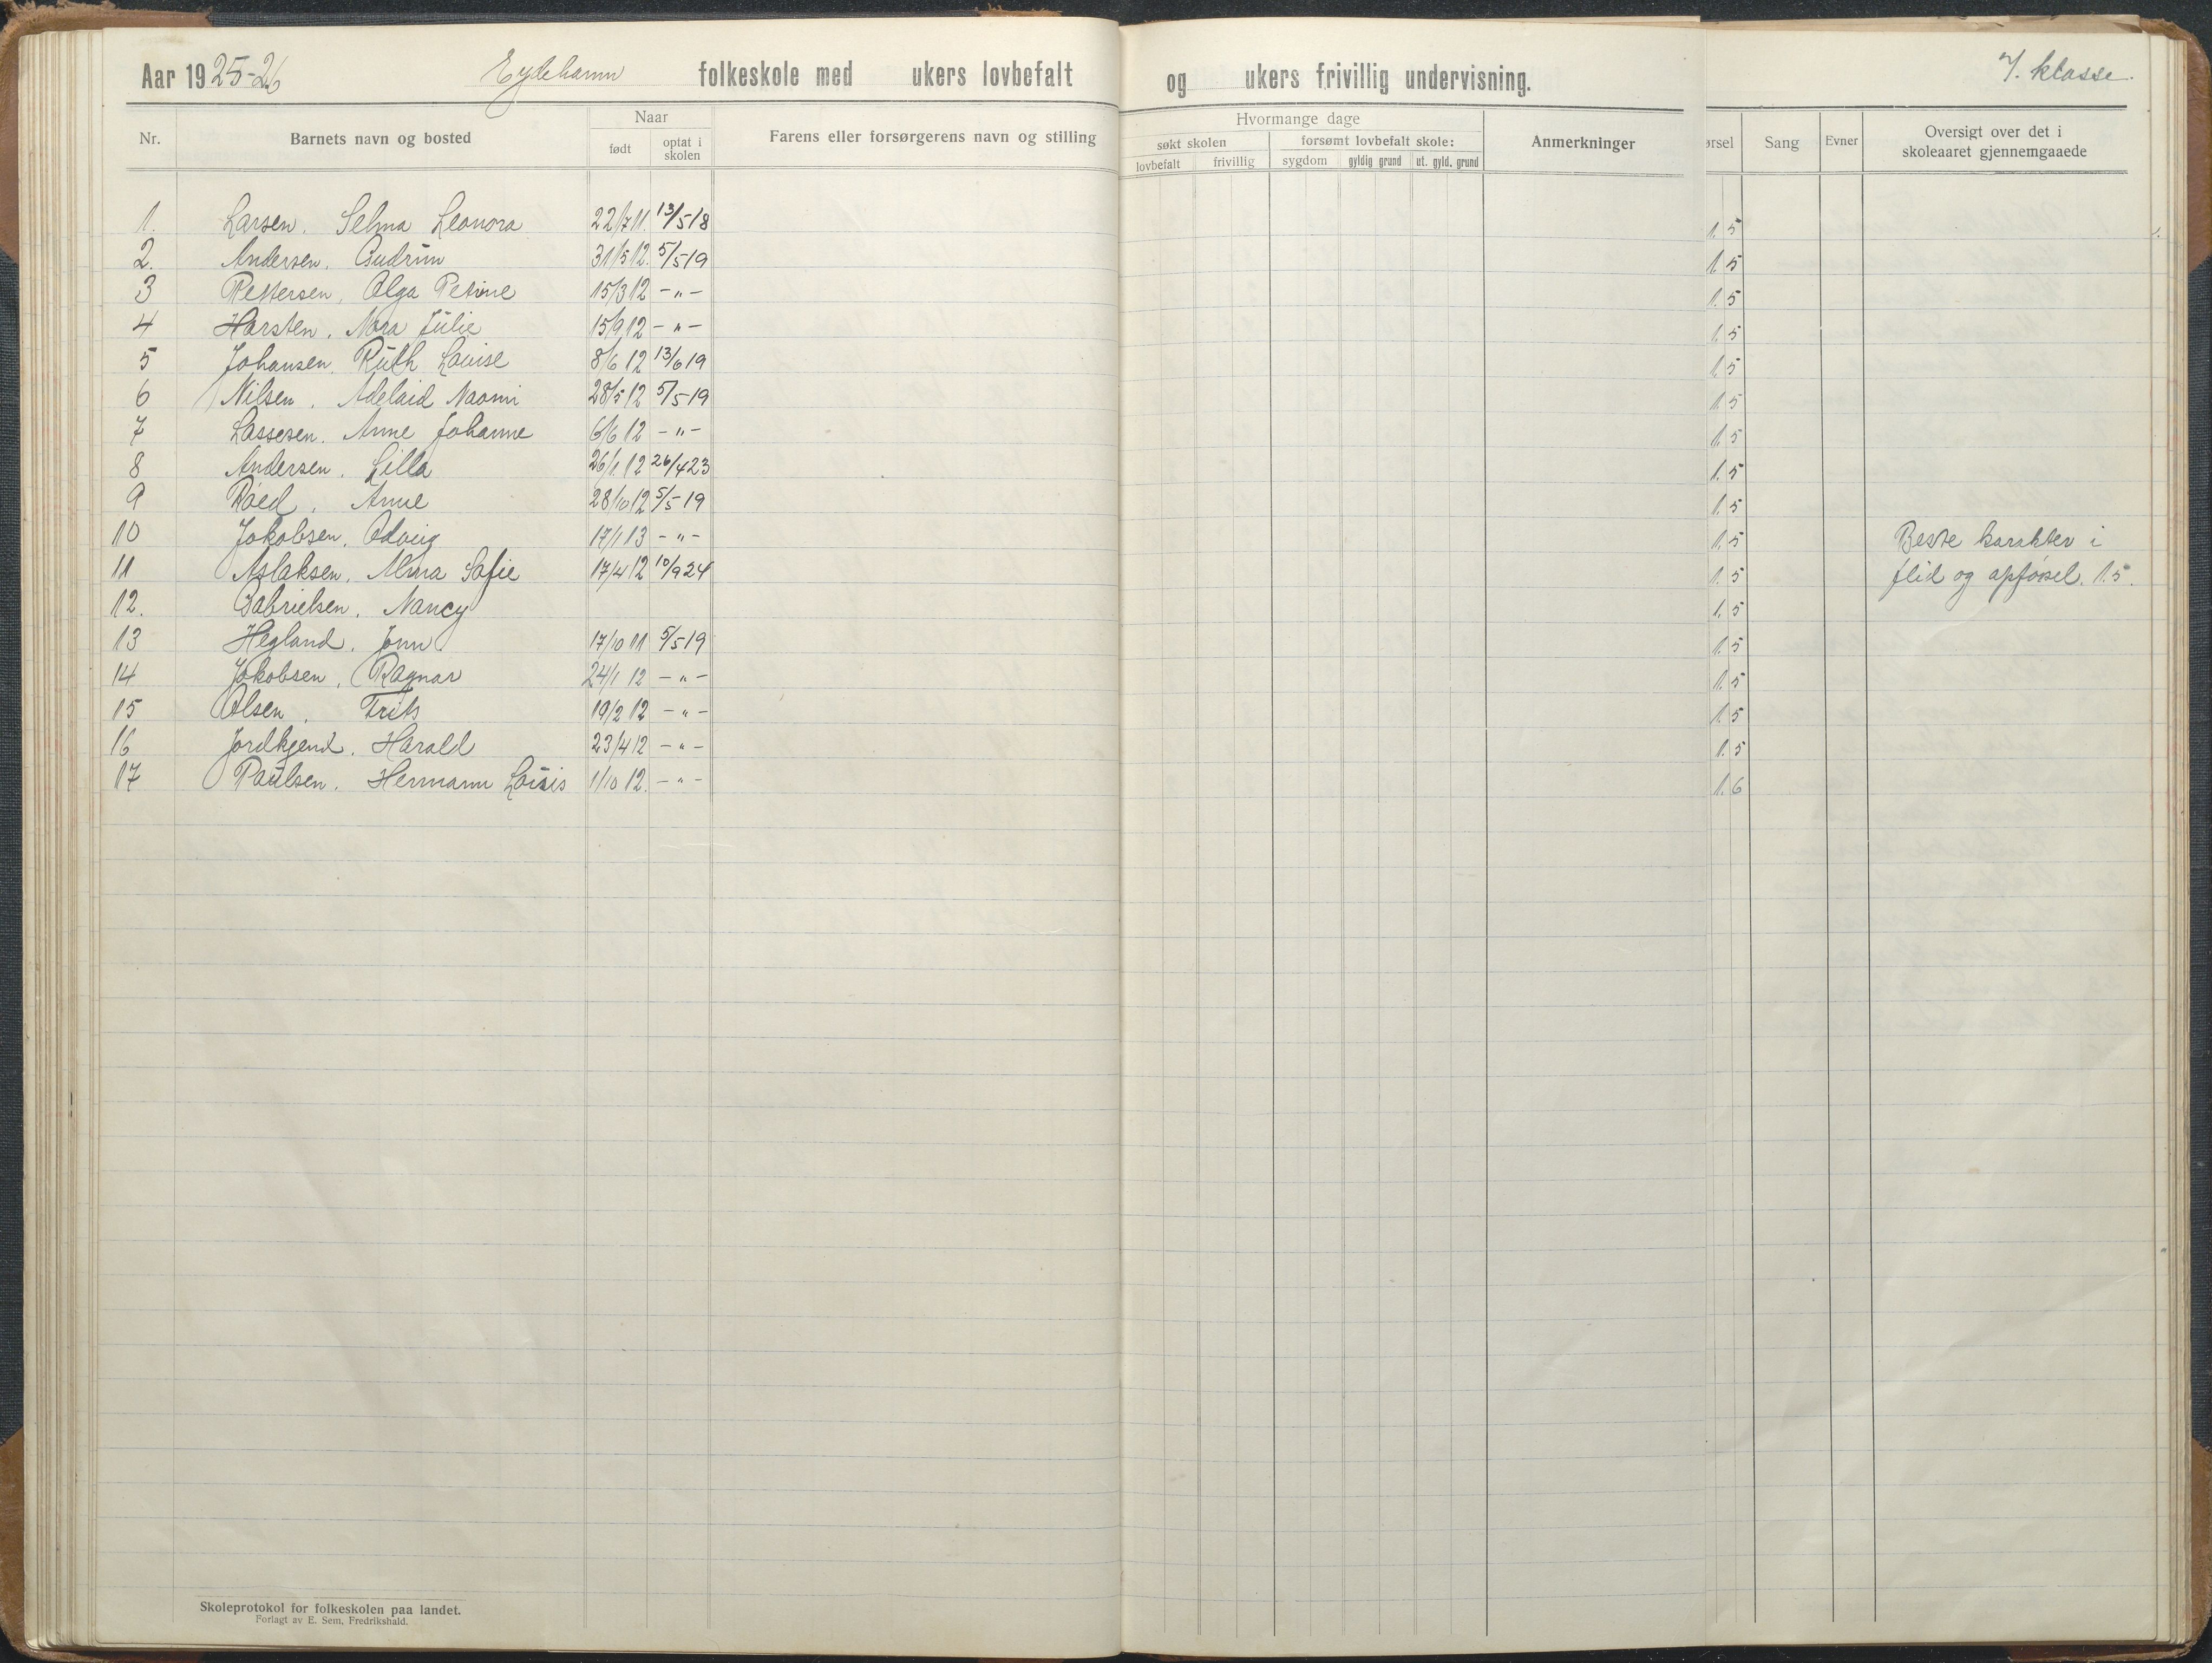 Aar 1925-26 Eydehamn folkeskole med ukers lovbefalt og ukers frivillig undervisning. 7. klasse.
Nr. Barnets navn og bosted Naar født optat i skolen Farens eller forsørgerens navn og stilling Hvormange dage søkt skolen lovbefalt frivillig forsømt lovbefalt skole: sygdom gyldig grund ut. gyld. grund Anmerkninger ørsel Sang Evner Oversigt over det i skoleaaret gjennemgaaede
1. Larsen. Selma Leonora 22/7 11. 13/5 18 1.5
2. Andersen. Gudrun 31/5 12. 5/5 19 1.5
3 Pettersen, Olga Petine 15/3 12 -„- 1.5
4 Harsten. Nora Julie 15/9 12 -„- 1.5
5 Johansen. Ruth Louise 8/6 12 13/6 19 1.5
6 Nilsen. Adelaid Naomi 28/5 12 5/5 19 1.5
7 Lassesen. Anne Johanne 6/6 12 -„- 1.5
8 Andersen. Lilla 26/1 12 26/4 23 1.5
9 Røed. Anne 28/10 12 5/5 19 1.5
10 Jakobsen. Odveig 17/1 13 -„- 1.5 Beste karakter i
11 Aslaksen. Alma Sofie 17/4 12 10/9 24 1.5 flid og opførsel. 1.5.
12. Gabrielsen. Nancy 1.5
13 Hegland. Jonn 17/10 11 5/5 19 1.5
14 Jakobsen, Ragnar 24/1 12 -„- 1.5
15 Olsen. Frits 19/2 12 -„- 1.5
16 Jordkjend. Harald 23/4 12 -„- 1.5
17 Paulsen. Hermann Louis 1/10 12. -„- 1.6
Skoleprotokol for folkeskolen paa landet.
Forlagt av E. Sem, Fredrikshald.